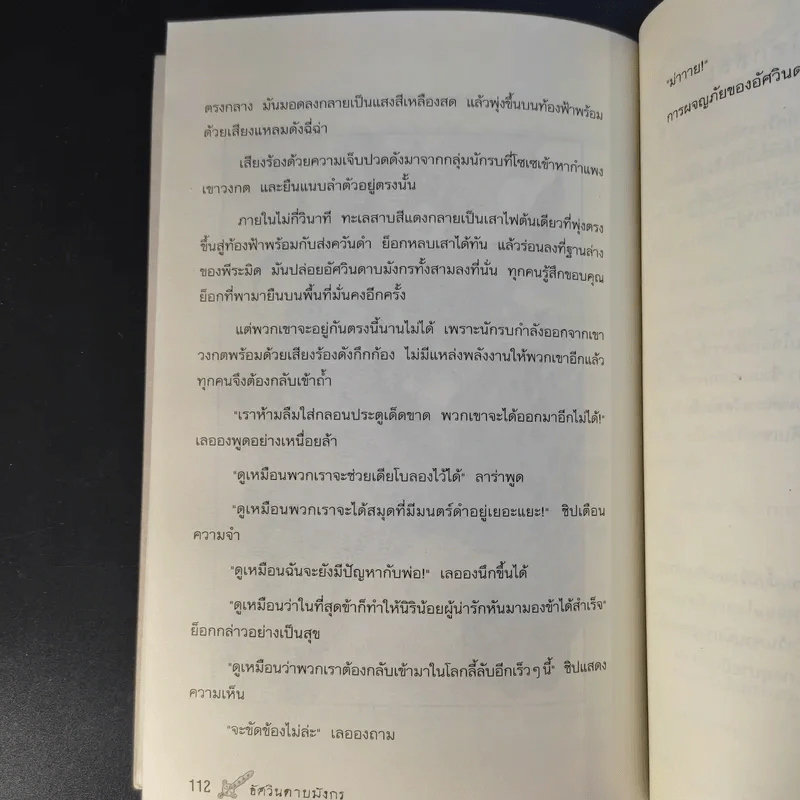 ตรงกลาง มันมอดลงกลายเป็นแสงสีเหลืองสด แล้วพุ่งขึ้นบนท้องฟ้าพร้อม
ด้วยเสียงแหลมดังฉี่ฉ่า
เสียงร้องด้วยความเจ็บปวดดังมาจากกลุ่มนักรบที่โซเซเข้าหากำแพง
เขาวงกต และยืนแนบลำตัวอยู่ตรงนั้น
ภายในไม่กี่วินาที ทะเลสาบสีแดงกลายเป็นเสาไฟต้นเดียวที่พุ่งตรง
ขึ้นสู่ท้องฟ้าพร้อมกับส่งควันดำ ย็อกหลบเสาได้ทัน แล้วร่อนลงที่ฐานล่าง
ของพีระมิด มันปล่อยอัศวินดาบมังกรทั้งสามลงที่นั่น ทุกคนรู้สึกขอบคุณ
ย็อกที่พามายืนบนพื้นที่มั่นคงอีกครั้ง
แต่พวกเขาจะอยู่กันตรงนี้นานไม่ได้ เพราะนักรบกำลังออกจากเขา
วงกตพร้อมด้วยเสียงร้องดังกึกก้อง ไม่มีแหล่งพลังงานให้พวกเขาอีกแล้ว
ทุกคนจึงต้องกลับเข้าถ้ำ
"เราห้ามลืมใส่กลอนประตูเด็ดขาด พวกเขาจะได้ออกมาอีกไม่ได้!"
เลอองพูดอย่างเหนื่อยล้า
"ดูเหมือนพวกเราจะช่วยเดียโบลองไว้ได้" ลาร่าพูด
"ดูเหมือนพวกเราจะได้สมุดที่มีมนตร์ดำอยู่เยอะแยะ!" ชิปเตือน
ความจำ
"ดูเหมือนฉันจะยังมีปัญหากับพ่อ!" เลอองนึกขึ้นได้
"ดูเหมือนว่าในที่สุดข้าก็ทำให้นิรินน้อยผู้น่ารักหันมามองข้าได้สำเร็จ"
ย็อกกล่าวอย่างเป็นสุข
"ดูเหมือนว่าพวกเราต้องกลับเข้ามาในโลกลี้ลับอีกเร็วๆ นี้" ชิปแสดง
ความเห็น
"จะขัดข้องไม่ล่ะ" เลอองถาม
112 อัศวินดาบมังกร
"ม่าาาย!"
การผจญภัยของอัศวินด